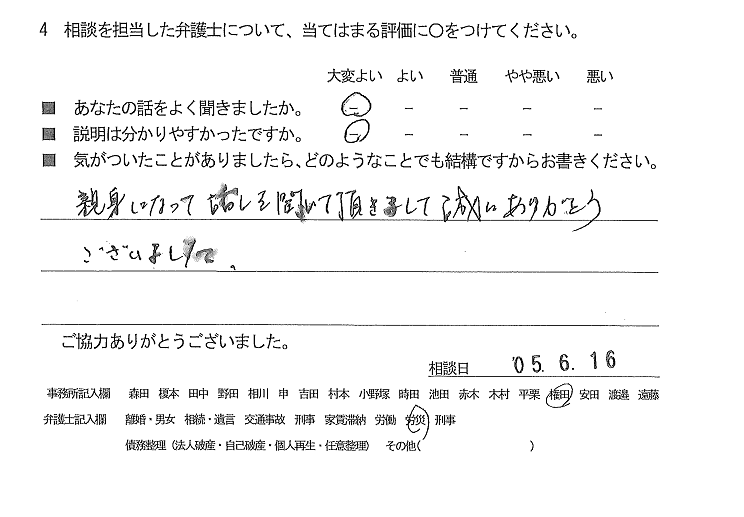 4 相談を担当した弁護士について、当てはまる評価に○をつけてください。
大変よい よい 普通 やや悪い 悪い
■ あなたの話をよく聞きましたか。 － － － － －
■ 説明は分かりやすかったですか。 － － － － －
■ 気がついたことがありましたら、どのようなことでも結構ですからお書きください。
親身になって話しを聞いて頂きまして誠にありがとう
ございました。
ご協力ありがとうございました。
相談日 '05. 6. 16
事務所記入欄 森田 榎本 田中 野田 相川 申 吉田 村本 小野塚 時田 池田 赤木 木村 平栗 権田 安田 渡邉 遠藤
弁護士記入欄 離婚・男女 相続・遺言 交通事故 刑事 家賃滞納 労働 労災 刑事
債務整理（法人破産・自己破産・個人再生・任意整理） その他( )